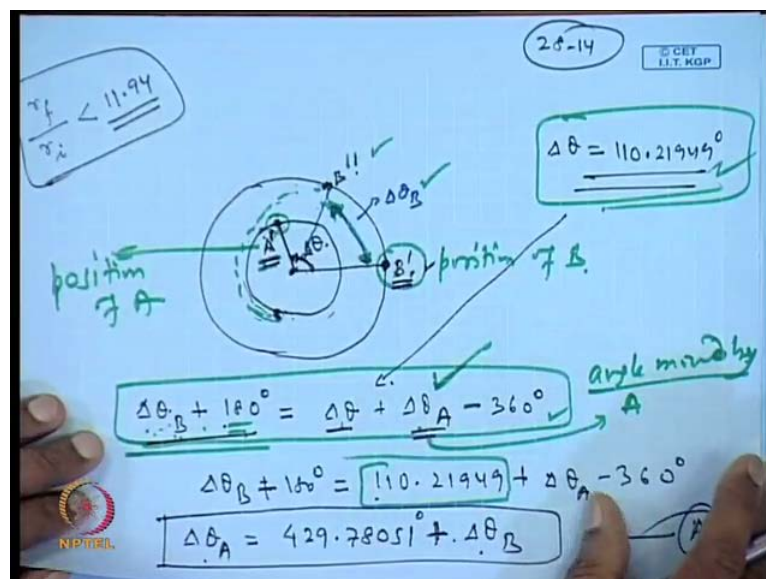 28-14
© CET
I.I.T. KGP
r_f / r_i < 11.94
Δθ = 110.21949°
B''
Δθ_B
A'
Δθ.
B'
position of A
position of B.
Δθ_B + 180° = Δθ + Δθ_A - 360°
angle moved by A
Δθ_B + 180° = 110.21949 + Δθ_A - 360°
Δθ_A = 429.78051° + Δθ_B
A
NPTEL